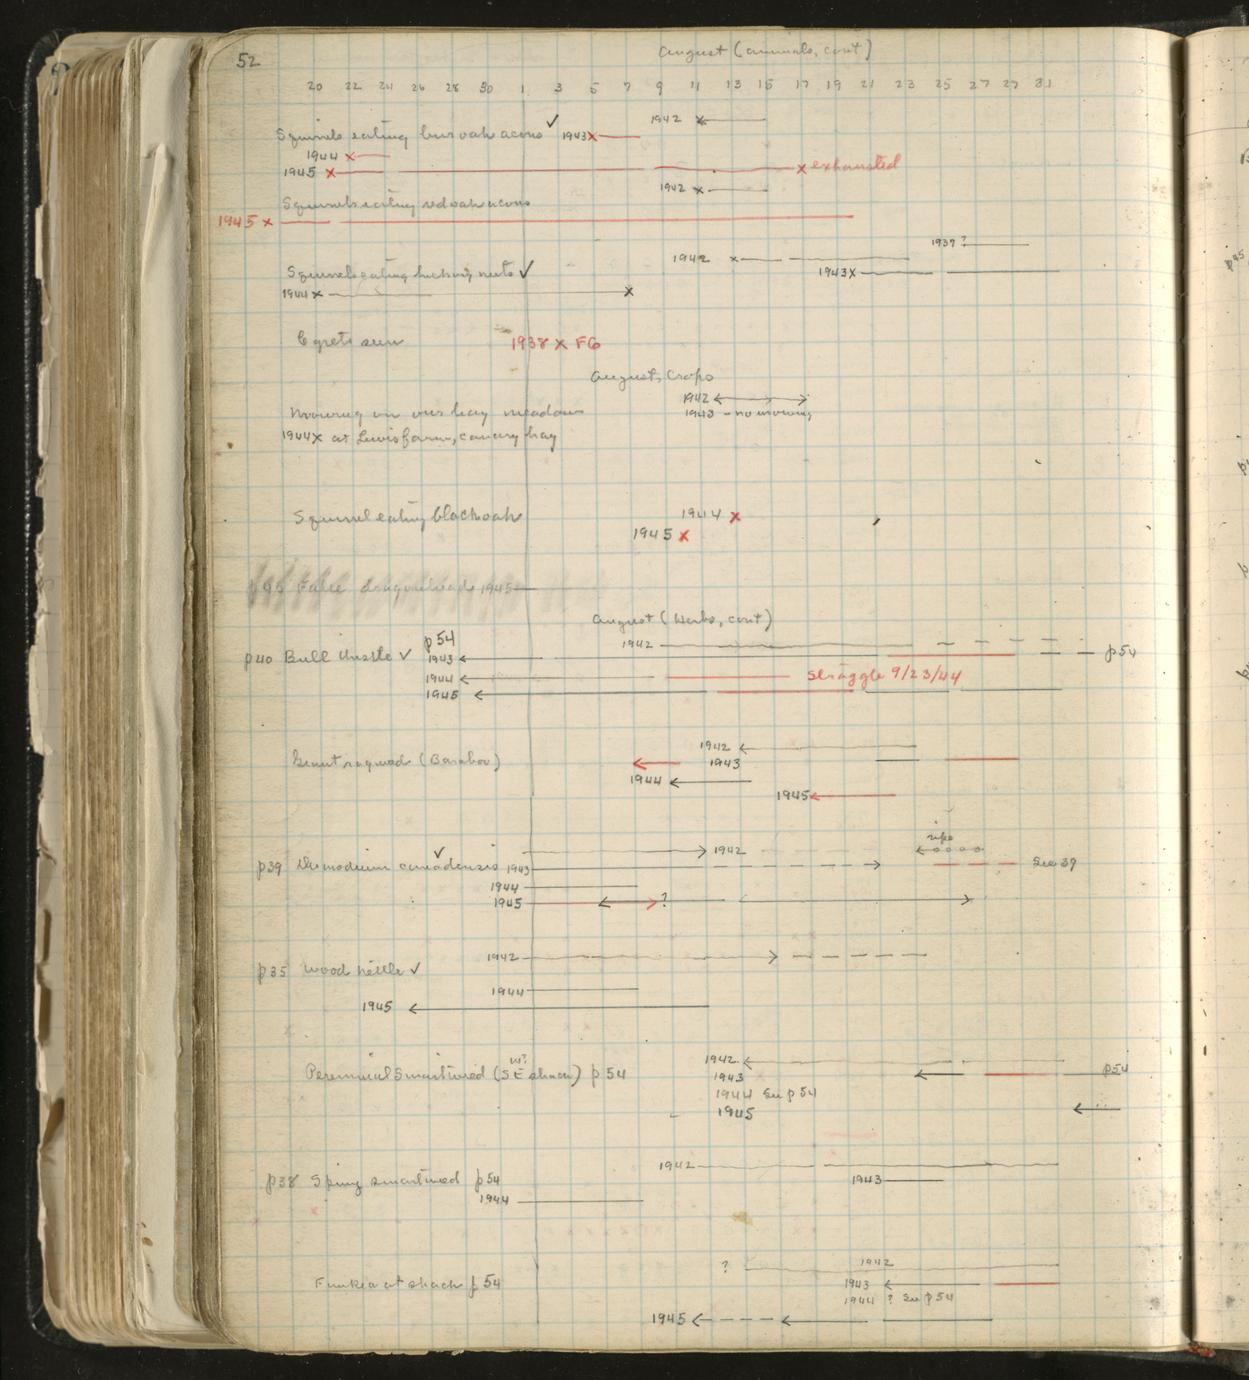 52
August (animals, cont)
20 22 24 26 28 30 1 3 5 7 9 11 13 15 17 19 21 23 25 27 29 31
1942 x
Squirrels eating bur oak acorns ✓ 1943 x
1944 x
1945 x x exhausted
1942 x
Squirrels eating red oak acorns
1945 x
1937 ?
1942 x
Squirrels eating hickory nuts ✓ 1943 x
1944 x x
Egrets seen 1938 x FG
August, Crops
1942
Mowing on our hay meadow 1943 - no mowing
1944 x at Lewis farm, canary hay
Squirrel eating black oak 1944 x
1945 x
p45 False dragonhead 1945
August (Herbs, cont)
p54
1942
p40 Bull thistle ✓ 1943 p54
1944 Straggle 9/23/44
1945
1942
Giant ragweed (Baraboo) 1943
1944
1945
ripe
1942
p39 Desmodium canadensis ✓ 1943 See 39
1944
1945 ?
1942
p35 Wood nettle ✓
1944
1945
w?
1942
Perennial Smartweed (SE shack) p54 1943 p54
1944 See p54
1945
1942
p38 Spiny smartweed p54 1943
1944
? 1942
Funkia at shack p54 1943
1944 ? See p54
1945